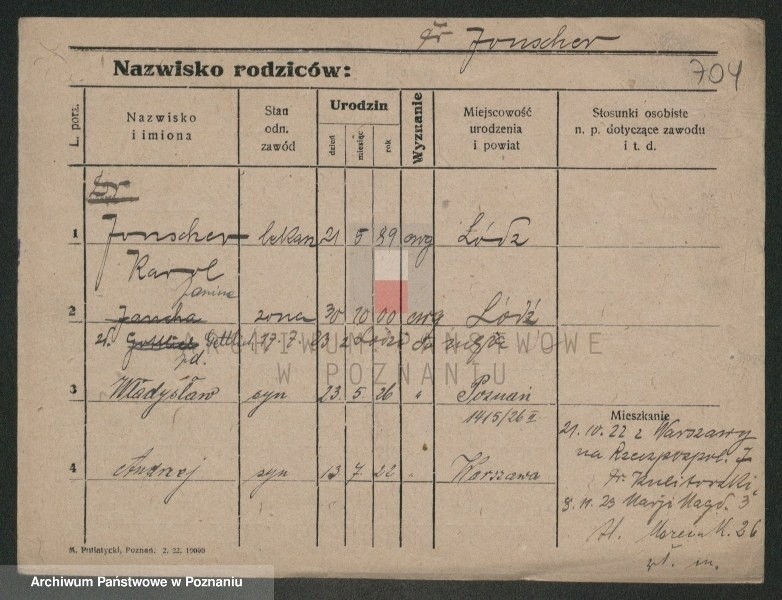 Dr Jonscher
704
Nazwisko rodziców:
L. porz.
Nazwisko i imiona
Stan odn. zawód
Urodzin
dzień miesiąc rok
Wyznanie
Miejscowość urodzenia i powiat
Stosunki osobiste n. p. dotyczące zawodu i t. d.
Dr
1 Jonscher lekarz 21 5 89 ewg Łódz
Karol
Janina
2 Jancha żona 30 10 00 ewg Łódź
17. 7. 23 z Łodzi
3 Władysław syn 23. 5. 26 " Poznań
1415/26 II
4 Andrzej syn 13 7 22 Warszawa
Mieszkanie
21. 10. 22 z Warszawy
na Rzeczpospol. 7
8. 11. 23 Marji Magd. 3
36
wł. m.
M. Putiatycki, Poznań. 2. 22.
ARCHIWUM PAŃSTWOWE
W POZNANIU
Archiwum Państwowe w Poznaniu